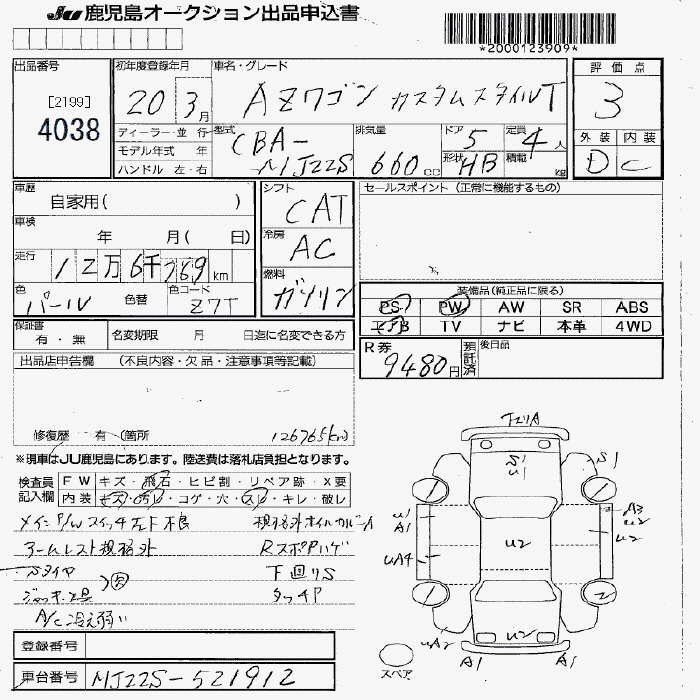 JU 鹿児島オークション出品申込書
*2000123909*
出品番号
[2199]
4038
初年度登録年月
20 3月
車名・グレード
AZワゴン カスタムスタイルT
評価点
3
外装 内装
D C
ディーラー・並 行
モデル年式 年
ハンドル 左・右
型式
CBA-
MJ22S
排気量
660cc
ドア
5
定員
4人
形状
HB
積載
kg
車歴
自家用( )
車検
年 月( 日)
走行
12万6千769km
色
パール
色替
色コード
Z7T
シフト
CAT
冷房
AC
燃料
ガソリン
セールスポイント (正常に機能するもの)
装備品(純正品に限る)
PS PW AW SR ABS
エアB TV ナビ 本革 4WD
保証書
有・無
名変期限 月 日迄に名変できる方
R券
9480円
預託済
後日品
出品店申告欄 (不良内容・欠品・注意事項等記載)
修復歴 有 (箇所
126765km
※現車はJU鹿児島にあります。陸送費は落札店負担となります。
検査員
記入欄
FW キズ・飛石・ヒビ割・リペア跡・X要
内装 キズ・汚れ・コゲ・穴・スレ・キレ・破レ
メインP/Wスイッチ左下不良
規格外ホイール
アームレスト規格外
Rスポアハゲ
Sタイヤ
下廻りS
ジャッキ・工具
タッチP
A/C冷え弱い
登録番号
車台番号
MJ22S-521912
S1
U1
S1
U1
A1
UA4
U2
A3
U2
U2
U2
UA2
A1
A1
スペア